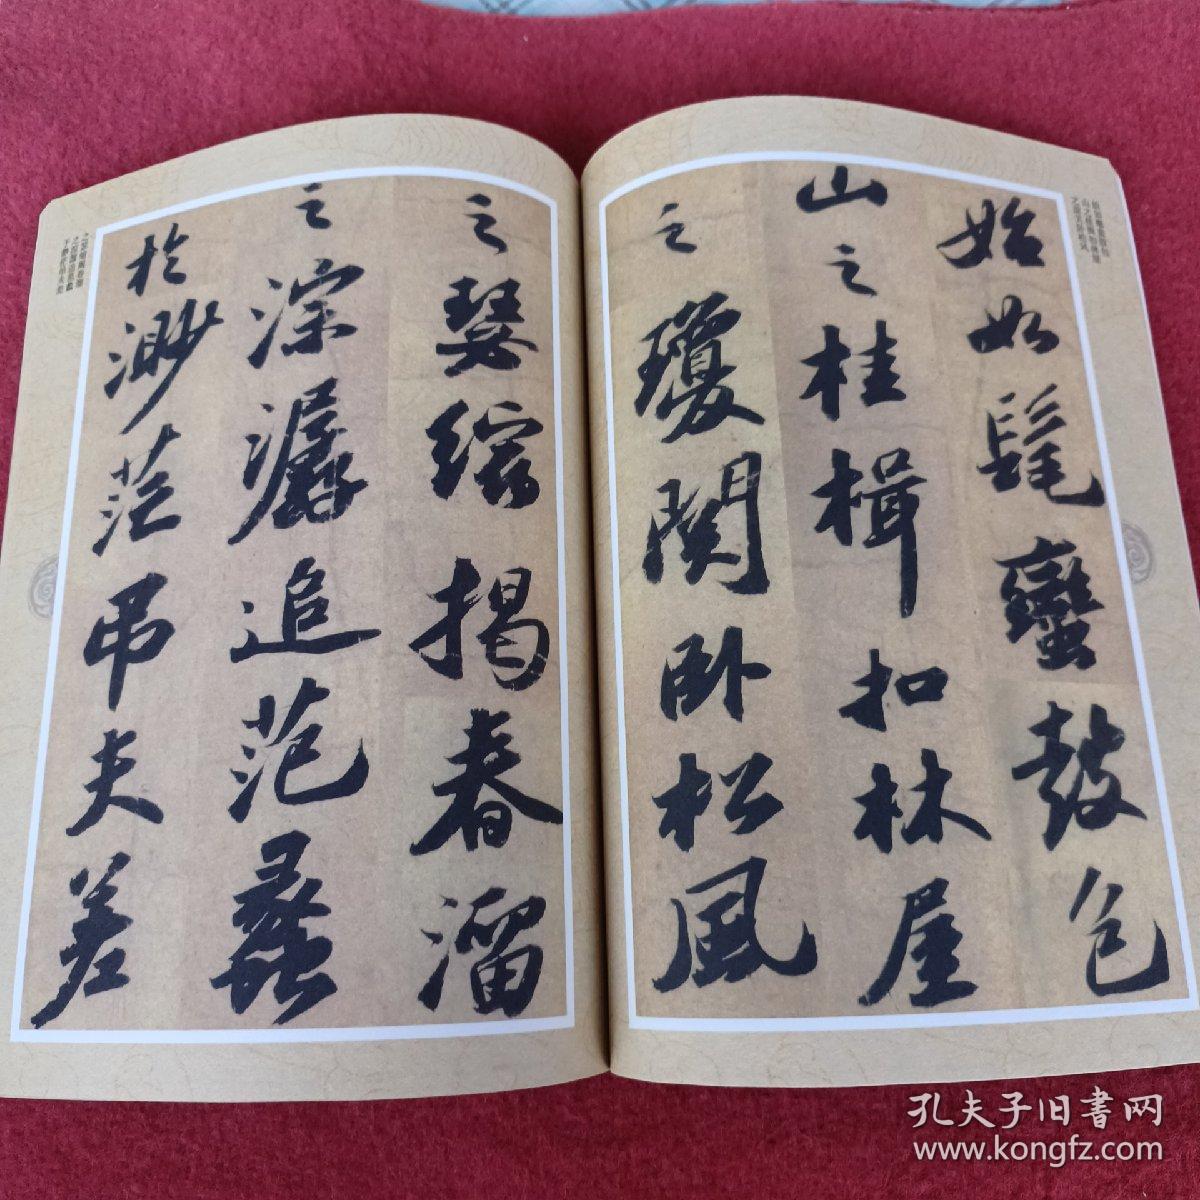 始如髦蠻鼓包
山之桂楫扣林屋
之瓊関卧松風
之瑟縮揭春溜
之淙潺追范蠡
於渺茫吊夫差
孔夫子旧書网
www.kongfz.com